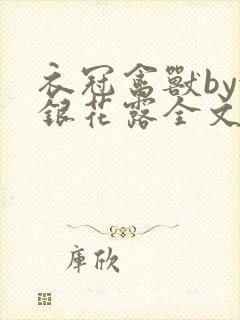 衣冠禽獸by
銀花露全文
庫欣